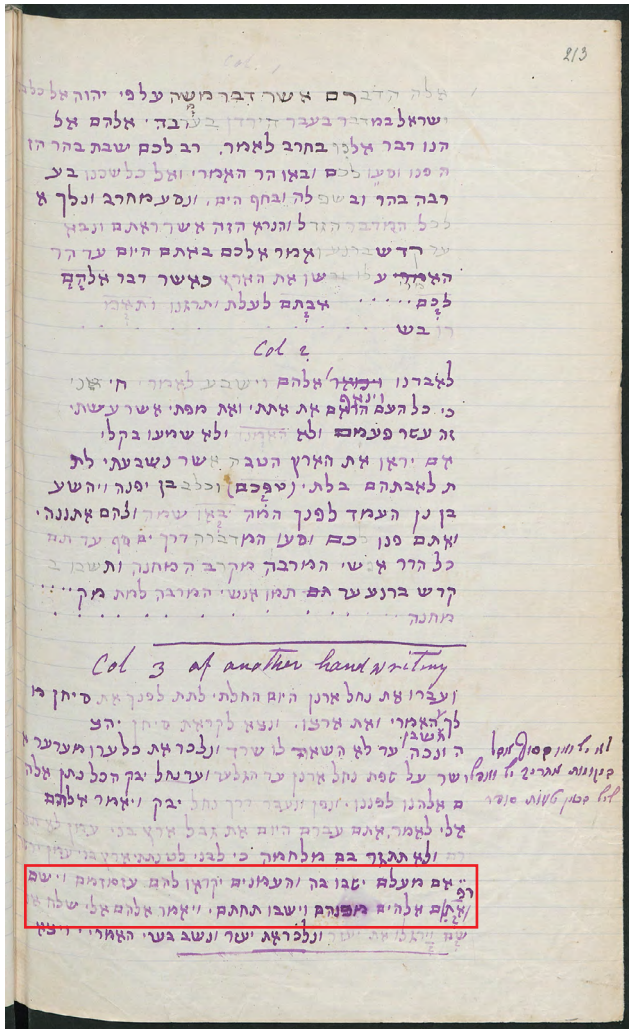 213
Col. 1
אלה הדברם אשר דבר משה על פי יהוה אל כל
ישראל במדבר בעבר הירדן בערבה · אלהם אל
הנו דבר אלנו בחרב לאמר . רב לכם שבת בהר הז
ה פנו וסעו לכם ובאו הר האמרי ואל כל שכנו בע
רבה בהר ובשפלה ובחף הים . ונסע מחרב ונלך א
לכל המדבר הגדל והנרא הזה אשר ראתם ונבא
עד קדש ברנע ואמר אלכם באתם היום עד הר
האמרי עלו ורשו את הארץ כאשר דבר אלהם
לכם · · · · · אבתם לעלת ותרגנו ותאמרו
בש
Col 2
לאבדנו אלהם וישבע לאמר · חי אני
וינאף
כי כל העם הראם את אתתי ואת מפתי אשר עשתי
זה עשר פעמם ולא האמנו ולא שמעו בקלי
אם יראן את הארץ הטבה אשר נשבעתי לת
ת לאבתהם בלתי (טפכם) וכלב בן יפנה ויהשע
בן נן העמד לפנך המה יבאו שמה ולהם אתננה ·
ואתם פנו לכם וסעו המדברה דרך ים סף עד תם
כל הדר אנשי המרבה מקרב המחנה ותשבו ב
קדש ברנע עד תם תמו אנשי המרבה למת מק · · · ·
מחנה
Col 3 of another handwriting
ועברו את נחל ארנן היום החלתי לתת לפנך את סיחן מ
לך האמרי ואת ארצו . ונצא לקראת סיחן יהצ
חשבן
ה ונכה עד לא השאר לו שרד ונלכד את כל ערו מערער א
שר על שפת נחל ארנן עד הגלעד ועד נחל יבק הכל נתן אלה
ם אלהנו לפננו · ונפן ונעבר דרך נחל יבק ויאמר אלהם
אלי לאמר, אתם עברם היום את גבל ארץ בני עמון
ולא תתגר בם מלחמה כי לבני לט נתתי ארץ בני עמון
רפ
אם מעלם ישבו בה והעמונים יקראן להם עזמזמם וישם
ואתם אלהים מפנהם וישבו תחתם · ויאמר אלהם אלי שלח
שם וירגלו את יעזר ונלכד את יעזר ונשב בערי האמרי · ויצא